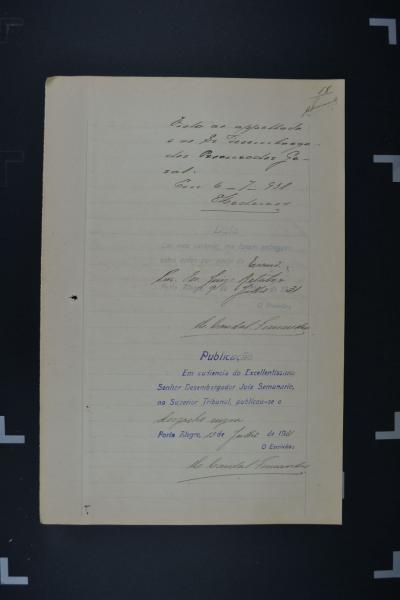 Vista ao appellado
e ao Sr. Desembarga-
dor Procurador Ge-
ral.
Em 6-7-931
Data
Em meu cartorio, me foram entregues
estes autos por parte do Exmo.
Snr. Des. Juiz Relator
Porto Alegre, de Julho de 1931
O Escrivão
Publicação
Em audiencia do Excellentissimo
Senhor Desembargador Juiz Semanario,
no Superior Tribunal, publicou-se o
despacho supra
Porto Alegre, 13 de Julho de 1931
O Escrivão